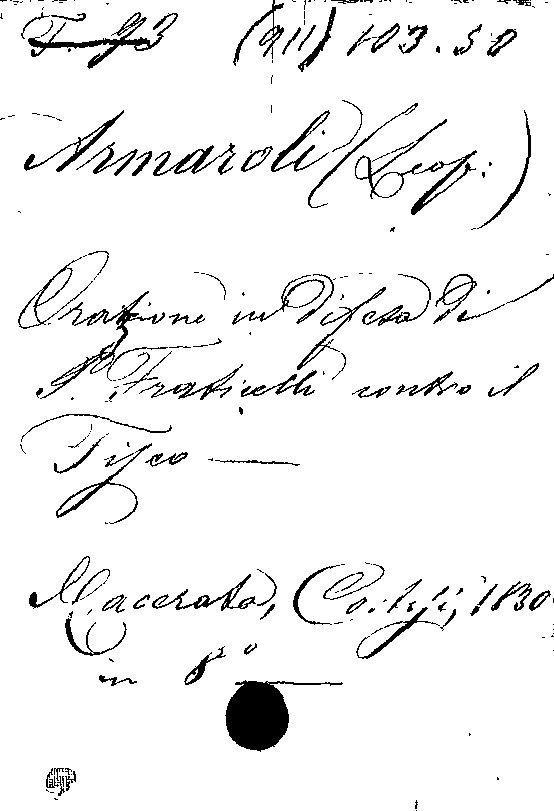 T 93 (911) 103.50
Armaroli (Leop:)
Orazione in difesa di
P. Fraticelli contro il
Fisco —
Macerata, Cortesi, 1830
in 8º